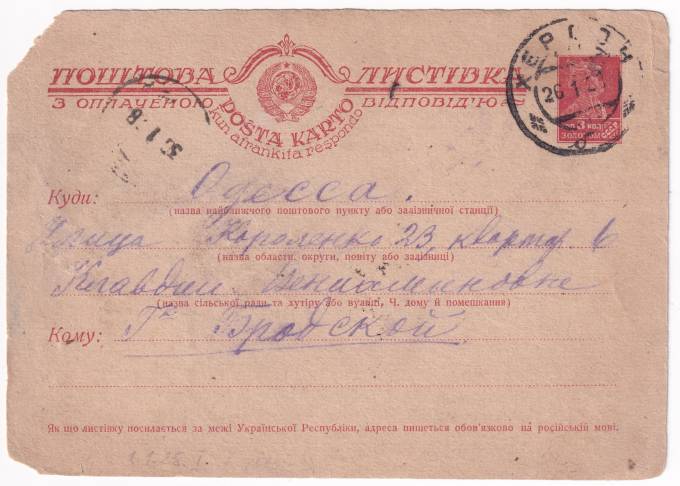 ПОШТОВА ЛИСТІВКА
З ОПЛАЧЕНОЮ ВІДПОВІД'Ю
POŜTA KARTO
kun afrankita respondo
Куди: Одесса.
(назва найближчого поштового пункту або залізничної станції)
Улица Короленко 23, квартира 6
(назва области, округи, повіту або залізниці)
Клавдии Вениаминовне
(назва сільської ради та хутіру або вулиці, Ч. дому й помешкання)
Кому: Г-ке Бродской
Як що листівку посилається за межі Української Республіки, адреса пишеться обов'язково на російській мові.